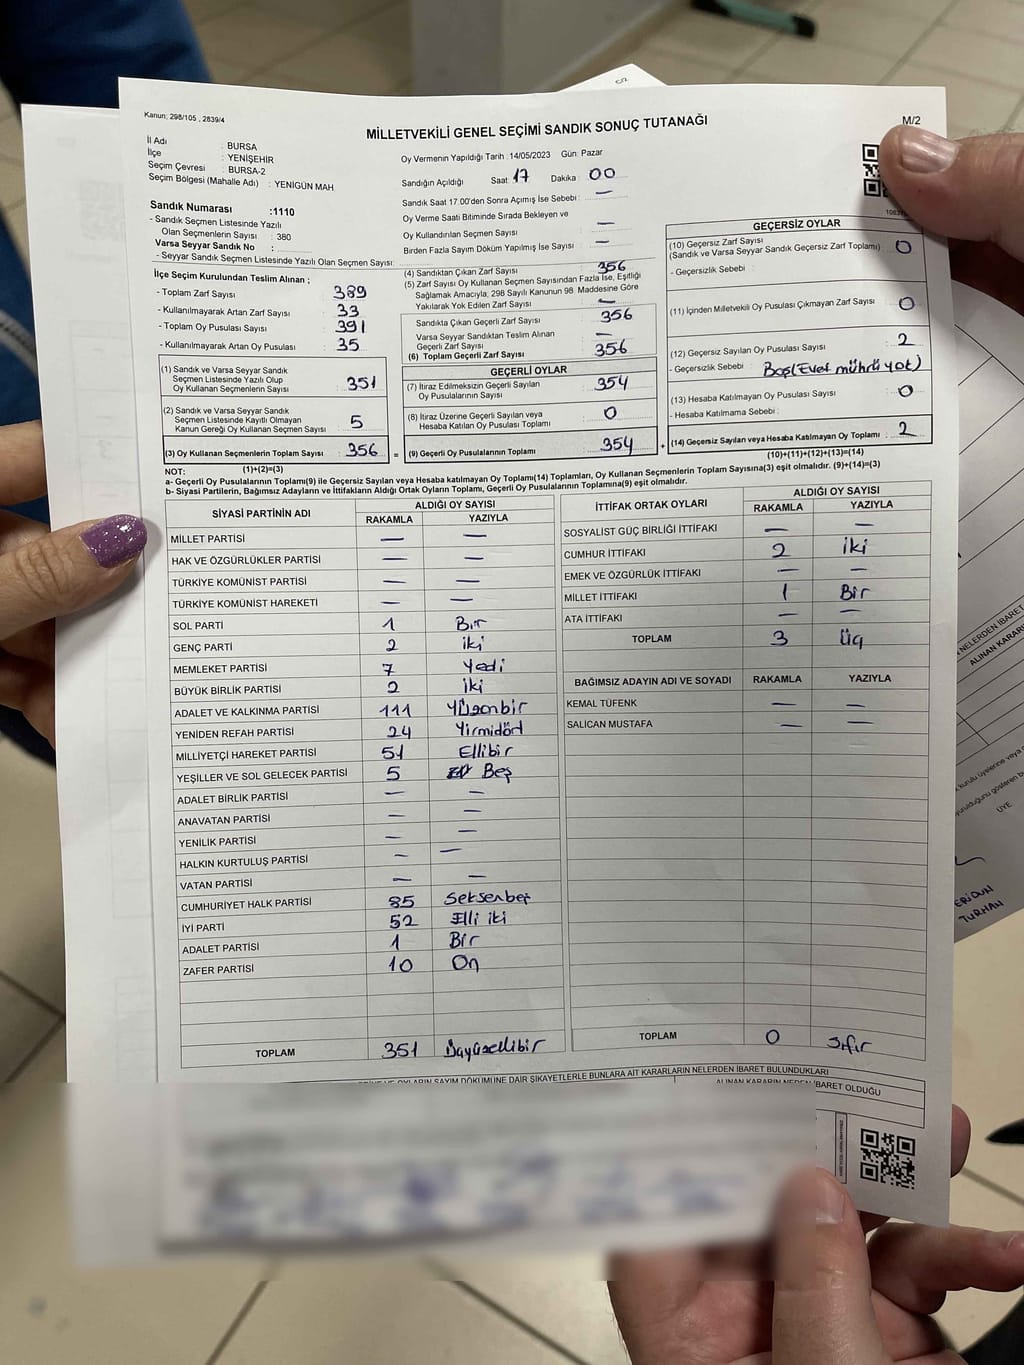 Kanun; 298/105 , 2839/4
MİLLETVEKİLİ GENEL SEÇİMİ SANDIK SONUÇ TUTANAĞI
M/2
İl Adı : BURSA
İlçe : YENİŞEHİR
Seçim Çevresi : BURSA-2
Seçim Bölgesi (Mahalle Adı) : YENİGÜN MAH
Oy Vermenin Yapıldığı Tarih : 14/05/2023 Gün: Pazar
Sandığın Açıldığı Saat: 17 Dakika : 00
Sandık Saat 17.00'den Sonra Açımış İse Sebebi : —
Oy Verme Saati Bitiminde Sırada Bekleyen ve
Oy Kullandırılan Seçmen Sayısı —
Birden Fazla Sayım Döküm Yapılmış İse Sayısı —
Sandık Numarası :1110
- Sandık Seçmen Listesinde Yazılı
Olan Seçmenlerin Sayısı : 380
Varsa Seyyar Sandık No :
- Seyyar Sandık Seçmen Listesinde Yazılı Olan Seçmen Sayısı:
İlçe Seçim Kurulundan Teslim Alınan ;
- Toplam Zarf Sayısı : 389
- Kullanılmayarak Artan Zarf Sayısı : 33
- Toplam Oy Pusulası Sayısı : 391
- Kullanılmayarak Artan Oy Pusulası : 35
(1) Sandık ve Varsa Seyyar Sandık
Seçmen Listesinde Yazılı Olup
Oy Kullanan Seçmenlerin Sayısı : 351
(2) Sandık ve Varsa Seyyar Sandık
Seçmen Listesinde Kayıtlı Olmayan
Kanun Gereği Oy Kullanan Seçmen Sayısı : 5
(3) Oy Kullanan Seçmenlerin Toplam Sayısı : 356
(1)+(2)=(3)
(4) Sandıktan Çıkan Zarf Sayısı : 356
(5) Zarf Sayısı Oy Kullanan Seçmen Sayısından Fazla İse, Eşitliği
Sağlamak Amacıyla; 298 Sayılı Kanunun 98. Maddesine Göre
Yakılarak Yok Edilen Zarf Sayısı : —
Sandıkta Çıkan Geçerli Zarf Sayısı : 356
Varsa Seyyar Sandıktan Teslim Alınan
Geçerli Zarf Sayısı : —
(6) Toplam Geçerli Zarf Sayısı : 356
GEÇERLİ OYLAR
(7) İtiraz Edilmeksizin Geçerli Sayılan
Oy Pusulalarının Sayısı : 354
(8) İtiraz Üzerine Geçerli Sayılan veya
Hesaba Katılan Oy Pusulası Toplamı : 0
= (9) Geçerli Oy Pusulalarının Toplamı : 354 +
GEÇERSİZ OYLAR
(10) Geçersiz Zarf Sayısı
(Sandık ve Varsa Seyyar Sandık Geçersiz Zarf Toplamı) 0
- Geçersizlik Sebebi :
(11) İçinden Milletvekili Oy Pusulası Çıkmayan Zarf Sayısı : 0
(12) Geçersiz Sayılan Oy Pusulası Sayısı : 2
- Geçersizlik Sebebi : Boş(Evet mührü yok)
(13) Hesaba Katılmayan Oy Pusulası Sayısı : 0
- Hesaba Katılmama Sebebi :
(14) Geçersiz Sayılan veya Hesaba Katılmayan Oy Toplamı : 2
(10)+(11)+(12)+(13)=(14)
NOT:
a- Geçerli Oy Pusulalarının Toplamı(9) ile Geçersiz Sayılan veya Hesaba katılmayan Oy Toplamı(14) Toplamları, Oy Kullanan Seçmenlerin Toplam Sayısına(3) eşit olmalıdır. (9)+(14)=(3)
b- Siyasi Partilerin, Bağımsız Adayların ve İttifakların Aldığı Ortak Oyların Toplamı, Geçerli Oy Pusulalarının Toplamına(9) eşit olmalıdır.
SİYASİ PARTİNİN ADI ALDIĞI OY SAYISI
RAKAMLA YAZIYLA
MİLLET PARTİSİ — —
HAK VE ÖZGÜRLÜKLER PARTİSİ — —
TÜRKİYE KOMÜNİST PARTİSİ — —
TÜRKİYE KOMÜNİST HAREKETİ — —
SOL PARTİ 1 Bir
GENÇ PARTİ 2 iki
MEMLEKET PARTİSİ 7 Yedi
BÜYÜK BİRLİK PARTİSİ 2 iki
ADALET VE KALKINMA PARTİSİ 111 Yüzonbir
YENİDEN REFAH PARTİSİ 24 Yirmidört
MİLLİYETÇİ HAREKET PARTİSİ 51 Ellibir
YEŞİLLER VE SOL GELECEK PARTİSİ 5 Beş
ADALET BİRLİK PARTİSİ — —
ANAVATAN PARTİSİ — —
YENİLİK PARTİSİ — —
HALKIN KURTULUŞ PARTİSİ — —
VATAN PARTİSİ — —
CUMHURİYET HALK PARTİSİ 85 Seksenbeş
İYİ PARTİ 52 Elli iki
ADALET PARTİSİ 1 Bir
ZAFER PARTİSİ 10 On
TOPLAM 351 Üçyüzellibir
İTTİFAK ORTAK OYLARI ALDIĞI OY SAYISI
RAKAMLA YAZIYLA
SOSYALIST GÜÇ BİRLİĞİ İTTİFAKI — —
CUMHUR İTTİFAKI 2 iki
EMEK VE ÖZGÜRLÜK İTTİFAKI — —
MİLLET İTTİFAKI 1 Bir
ATA İTTİFAKI — —
TOPLAM 3 Üç
BAĞIMSIZ ADAYIN ADI VE SOYADI RAKAMLA YAZIYLA
KEMAL TÜFENK — —
SALİCAN MUSTAFA — —
TOPLAM 0 Sıfır
OYLARIN SAYIM DÖKÜMÜNE DAİR ŞİKAYETLERLE BUNLARA AİT KARARLARIN NELERDEN İBARET BULUNDUKLARI
ALINAN KARARIN NEDEN İBARET OLDUĞU
NELERDEN İBARET
ALINAN KARARIN
ÜYE
ERİDUN
TURHAN